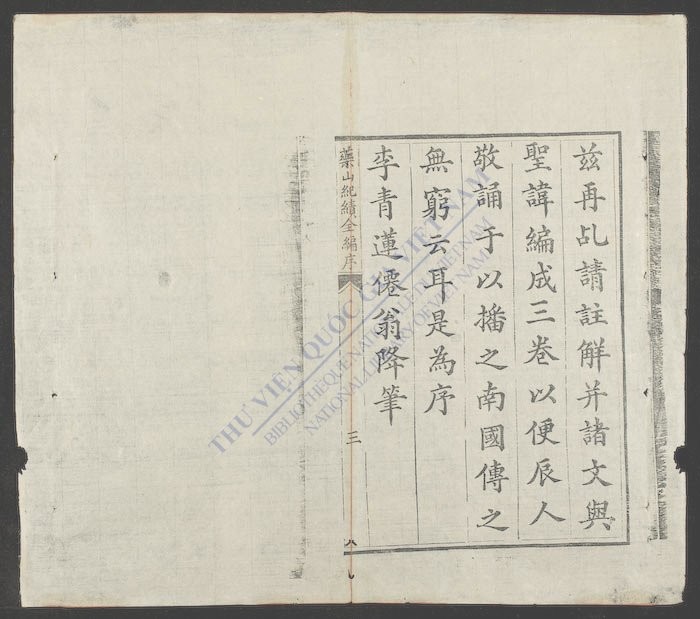 兹再乩請註解并諸文與
聖諱編成三卷以便辰人
敬誦于以播之南國傳之
無窮云耳是為序
李青蓮僊翁降筆
藥山紀績全編序
三
THƯ VIỆN QUỐC GIA VIỆT NAM
BIBLIOTHÈQUE NATIONALE DU VIETNAM
NATIONAL LIBRARY OF VIETNAM